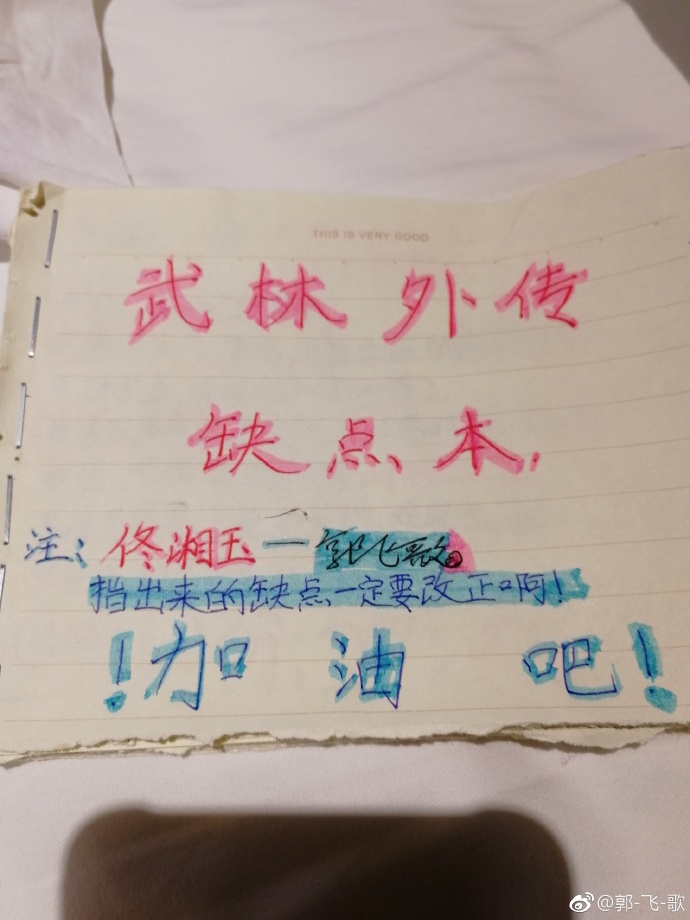 THIS IS VERY GOOD
武林外传
缺点本,
注:佟湘玉—郭飞歌。
指出来的缺点一定要改正啊!
!加油吧!
@郭-飞-歌